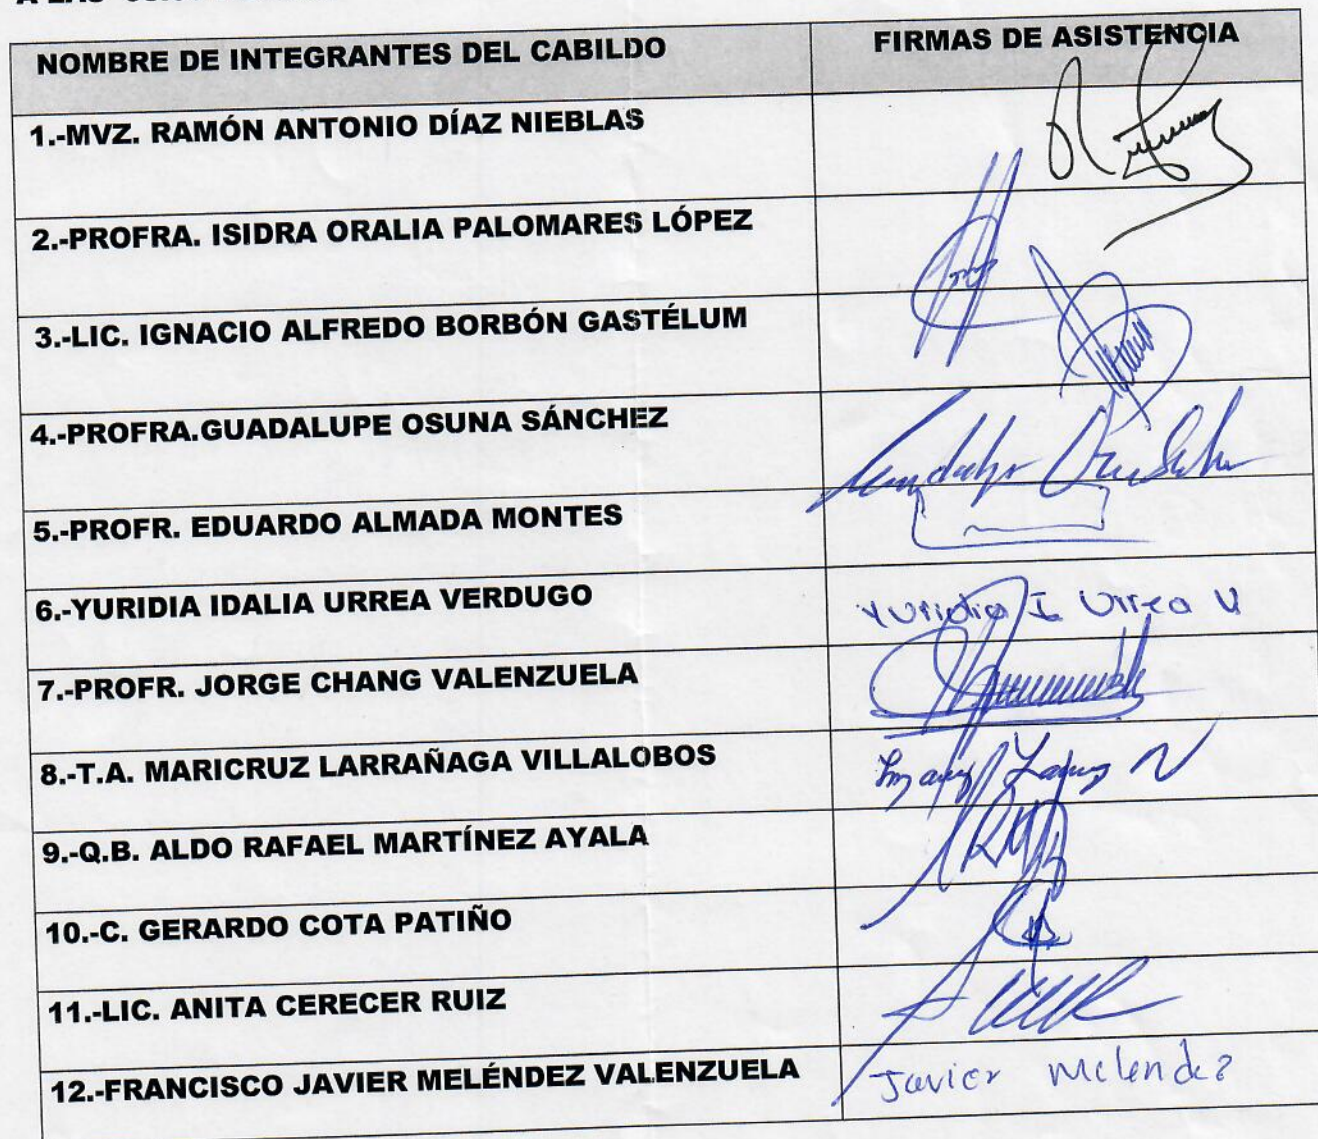 NOMBRE DE INTEGRANTES DEL CABILDO FIRMAS DE ASISTENCIA
1.-MVZ. RAMÓN ANTONIO DÍAZ NIEBLAS
2.-PROFRA. ISIDRA ORALIA PALOMARES LÓPEZ
3.-LIC. IGNACIO ALFREDO BORBÓN GASTÉLUM
4.-PROFRA.GUADALUPE OSUNA SÁNCHEZ
5.-PROFR. EDUARDO ALMADA MONTES
6.-YURIDIA IDALIA URREA VERDUGO Yuridia I Urrea V
7.-PROFR. JORGE CHANG VALENZUELA
8.-T.A. MARICRUZ LARRAÑAGA VILLALOBOS
9.-Q.B. ALDO RAFAEL MARTÍNEZ AYALA
10.-C. GERARDO COTA PATIÑO
11.-LIC. ANITA CERECER RUIZ
12.-FRANCISCO JAVIER MELÉNDEZ VALENZUELA Javier Melendez